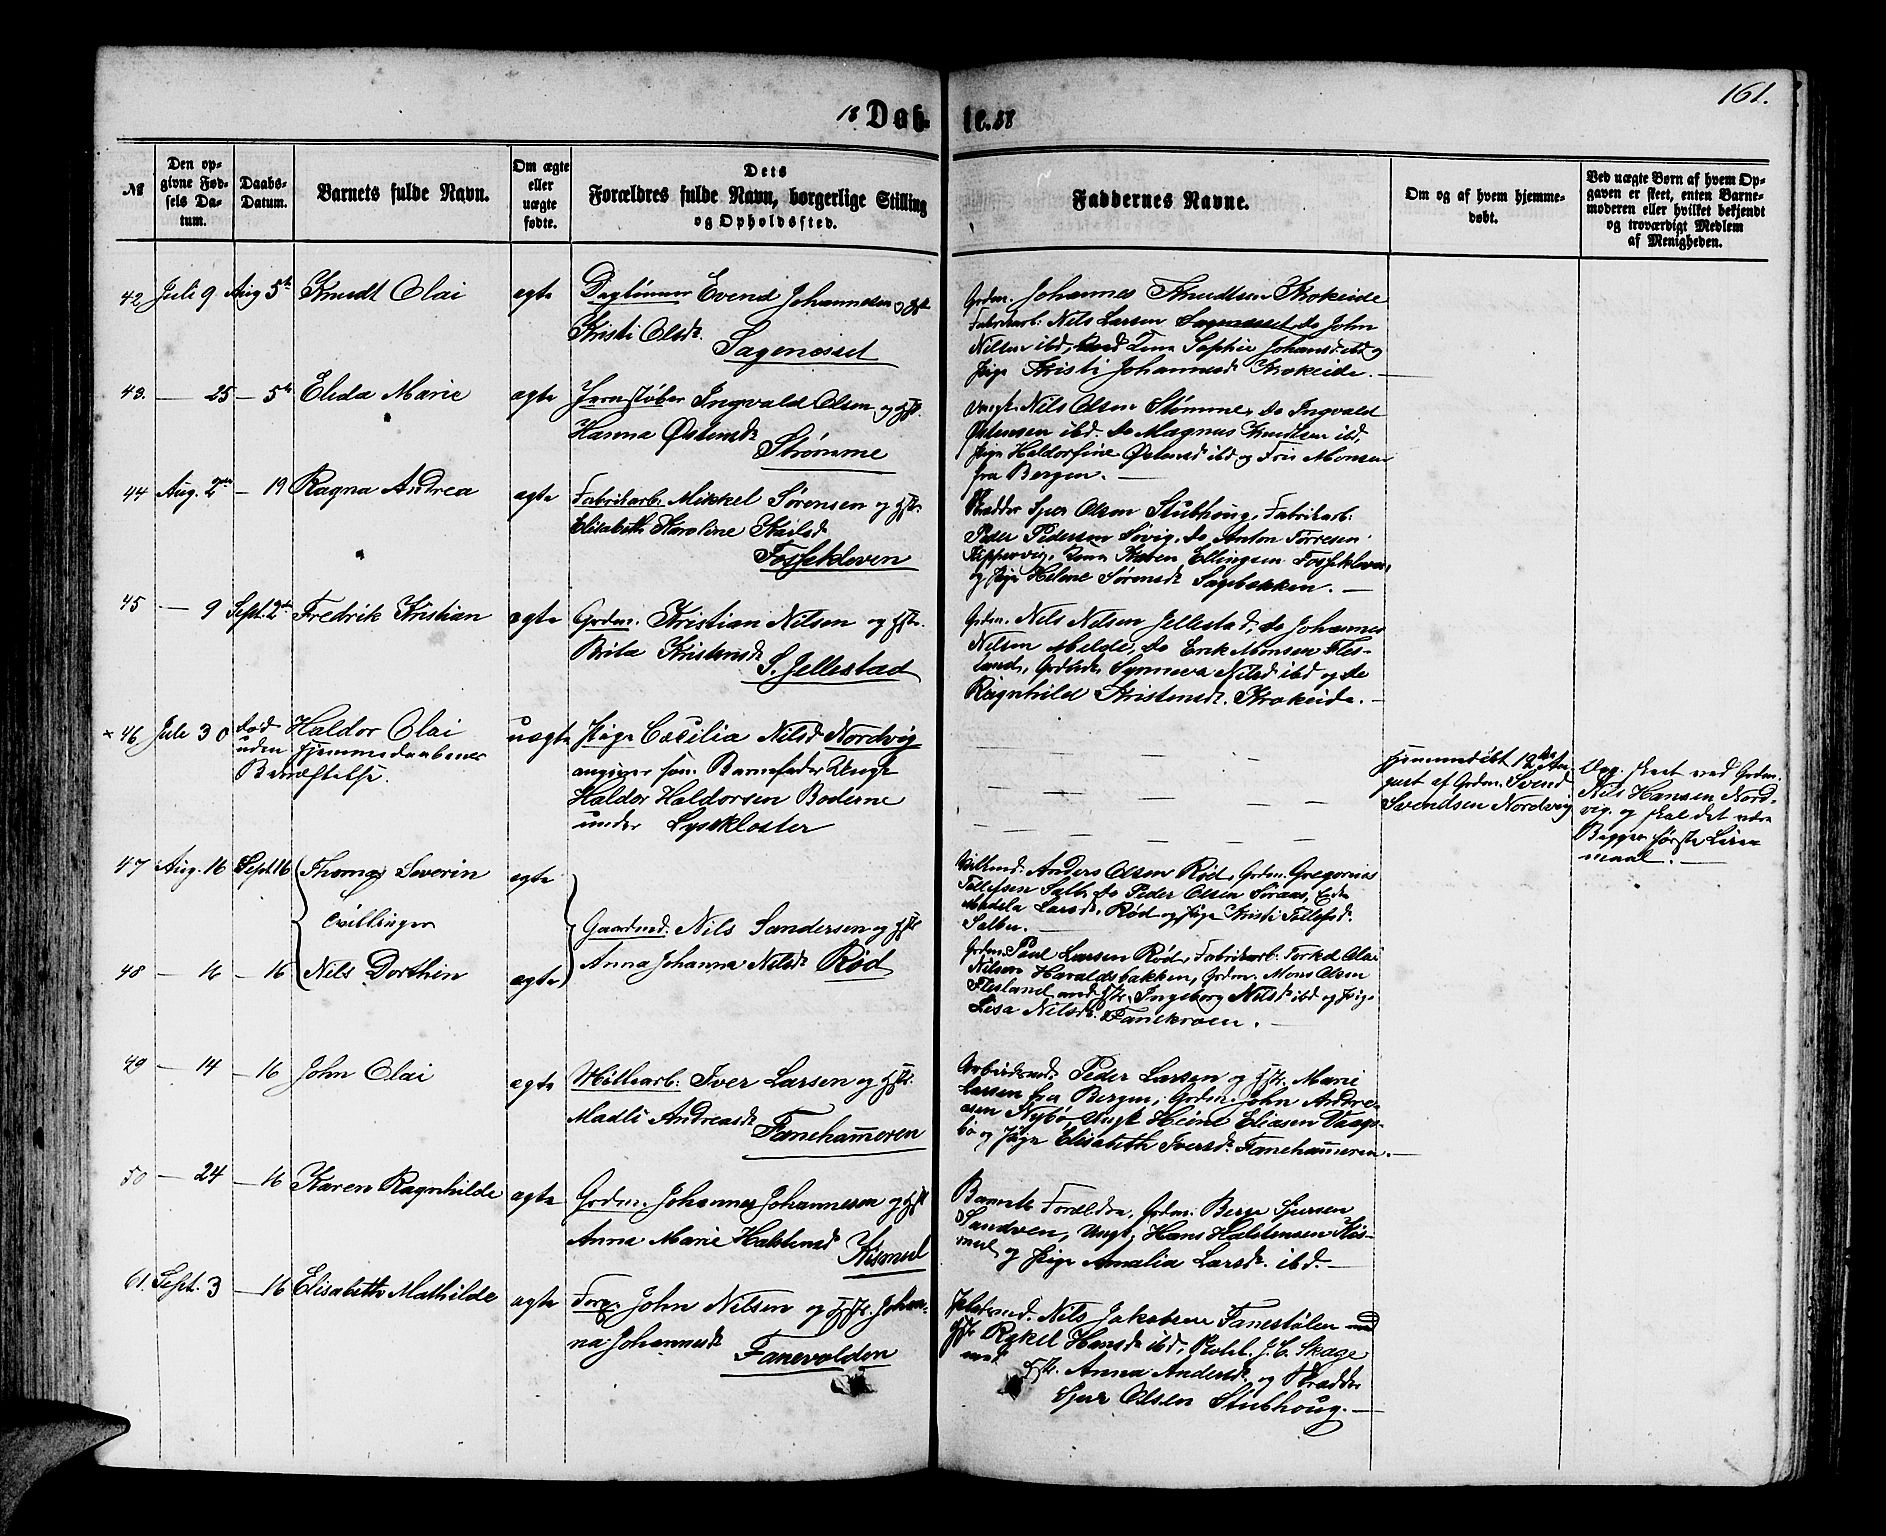 161.
18 Døb-te. 88
No
Den opgivne Fødsels Datum.
Daabs-Datum.
Barnets fulde Navn.
Om ægte eller uægte fødte.
Dets
Forældres fulde Navn, borgerlige Stilling
og Opholdssted.
Faddernes Navne.
Om og af hvem hjemmedøbt.
Ved uægte Børn af hvem Opgaven er skeet, enten Barnemoderen eller hvilket bekjendt og troværdigt Medlem af Menigheden.
42 Juli 9 Aug 5te Knudt Olai ægte Daglønner Evend Johannesen og Hst
Kristi Olsdr.
Sagenesset
Grdm. Johannes Knudtsen Krokeide
Fabrikarb. Nils Larsen Sagenesset, do John
Nilsen ibd, Kone Sophie Johansd ibd og
Pige Kristi Johannesdr Krokeide.
43. — 25 — 5te Elida Marie ægte Jernstøber Ingvald Olsen og Hst.
Hanna Østensdr
Strømme
Ungk. Nils Olsen Strømme, do Ingvald
Østensen ibd. do Magnus Knudtsen ibd,
Pige Haldorfine Østensd ibd og Monsen
fra Bergen.
44 Aug. 2den — 19 Ragna Andrea ægte Fabrikarb. Mikkel Sørensen og Hst.
Elisabeth Karoline
Fossekleven
Skrædder Sjur Olsen Stubhoug, Fabrikarb.
Peder Pedersen Søvig, do Anton Torresen
Karen Ellingsen Fossekleven,
og Pige Helene Sørensdr Sagebakken.
45 — 9 Sept. 2den Fredrik Kristian ægte Grdm. Kristian Nilsen og Hst.
Brita Kristensdr
S. Jellestad
Grdm. Nils Nilsen Jellestad, do Johannes
Nilsen Milde, do Erik Monsen Flesland, Synneva Nilsd ibd og do
Ragnhild Kristensdr. Krokeide.
× 46. Juli 30 død uden Hjemmedaabens Bekræftelse. Haldor Olai uægte Pige Cecilia Nilsd Nordvig
angiver som Barnefader Ungk.
Haldor Haldorsen Boderne
under Lysekloster
Hjemmedøbt 12te August af Grdm. Svend
Svendsen Nordvig
Opg. skeet ved Grdm.
Nils Hansen Nordvig. og skal det være
Begges første Leiermaal.
47 Aug. 16 Sept. 16 Thomas Severin ægte
Tvillinger
Gaardmd. Nils Sandersen og Hst
Anna Johanna Nilsdr Rød
Anders Olsen Rød, Grdm. Gregorius
Tollefsen Salb. do Peder Olsen Søraas,
Larsdr. Rød og Pige Kristi Tollefsd.
48 — 16 — 16 Nils Dorthin ægte
Grdm. Paul Larsen Rød, Fabrikarb. Torkel Olai
Nilsen Haraldsbakken, Grdm. Mons Olsen
Flesland med Hst. Ingeborg Nilsd ibd og Pige
Lisa Nilsdr. Fanekroen.
49 — 14 — 16 John Olai ægte Møllearb. Iver Larsen og Hst.
Madli Andreasdr
Fanehammeren
Arbeidsmd. Peder Larsen og Hst. Marie
Larsen fra Bergen, Grdm. John Andreasen Nybø, Ungk Heine Eliasen Vaagsbø og Pige Elisabeth Iversdr. Fanehammeren.
50 — 24 — 16 Karen Ragnhilde ægte Grdm. Johannes Johannesen og Hst
Anna Marie Halstensd
Kismul
Barnets Forældre, Grdm. Berge Sjursen
Sandven, Ungk. Hans Halstensen Kismul og Pige Amalia Larsdr. ibd.
61. Sept. 3 — 16 Elisabeth Mathilde ægte John Nilsen og Hst. Johanna Johannesdr
Fanevolden
Pladsmd. Nils Jakobsen Fanestølen med
Hst. Rakel Hansdr ibd, J. C. Skage
med Hst. Anna Andersdr og Skrædder
Sjur Olsen Stubhoug.